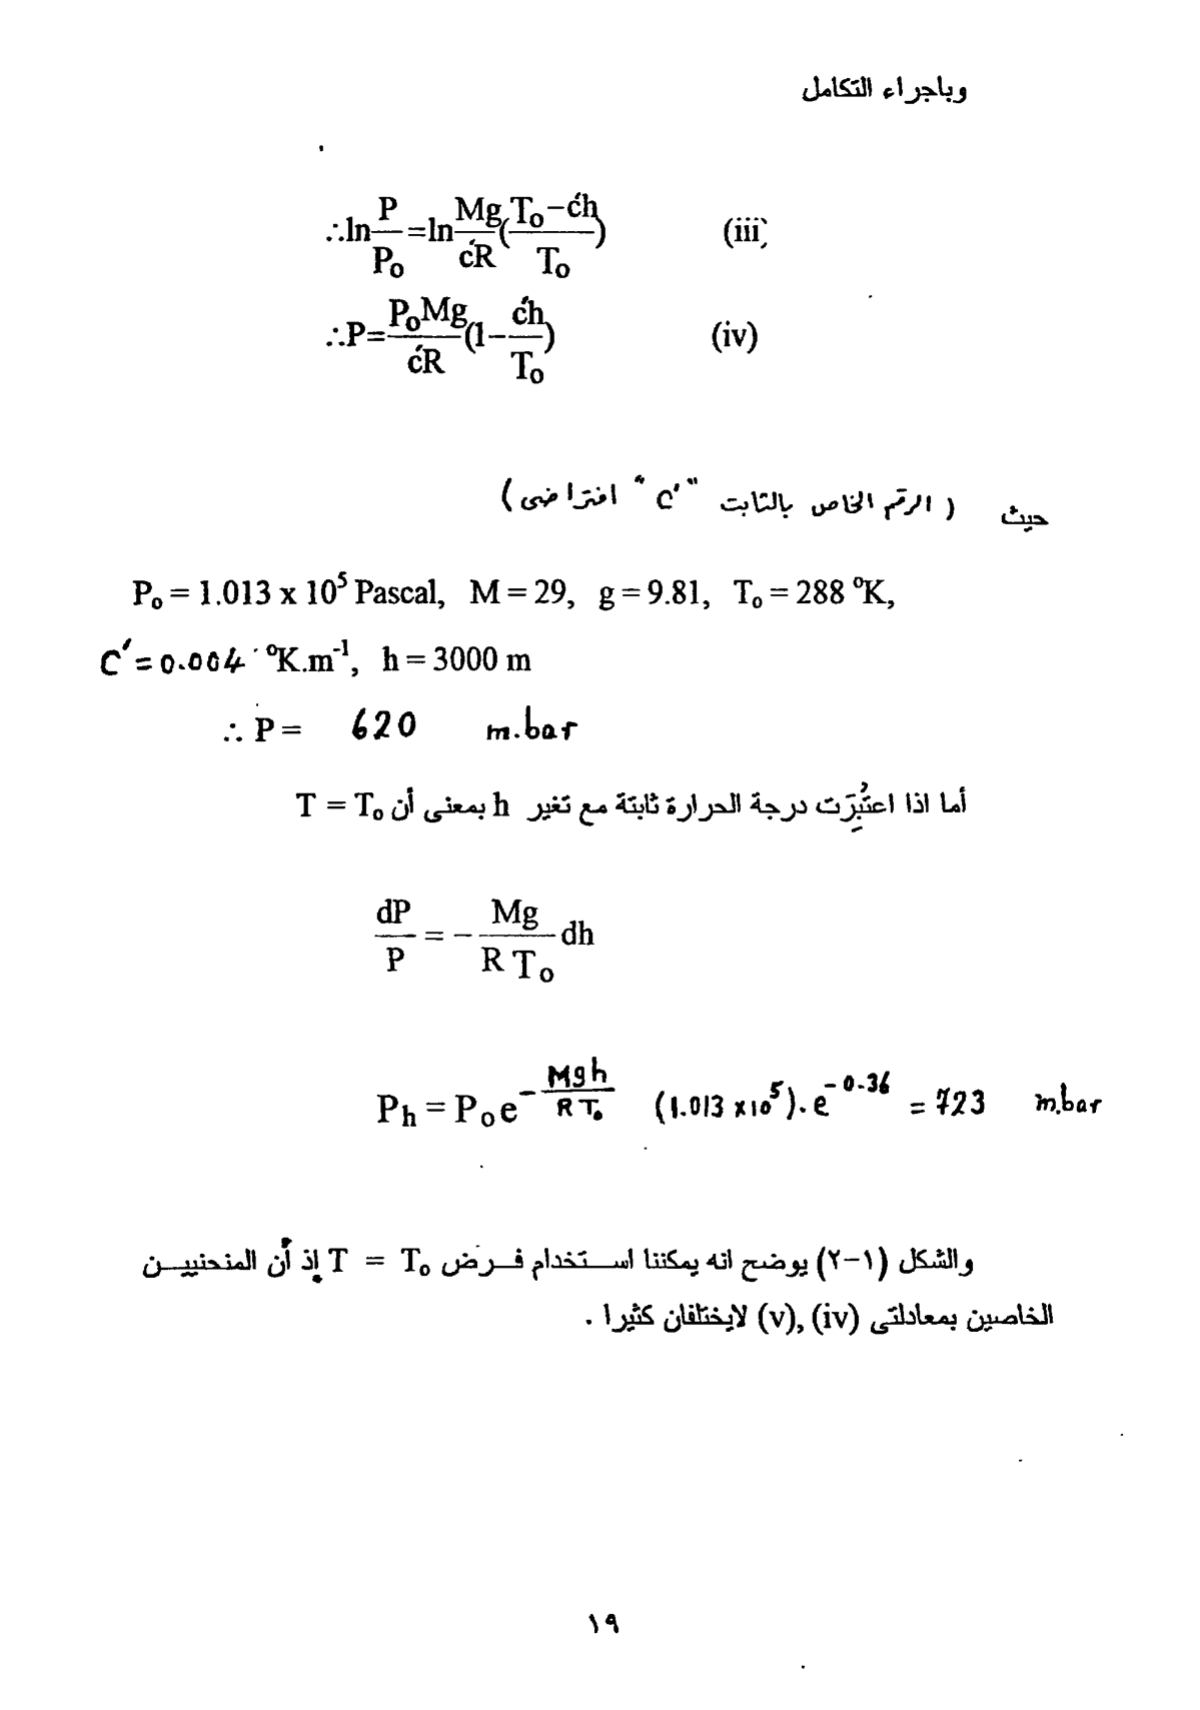 وباجراء التكامل
∴ln P/P₀ =ln Mg/ćR (T₀−ćh/T₀) (iii)
∴P= P₀Mg/ćR (1− ćh/T₀) (iv)
حيث ( الرقم الخاص بالثابت "C′" افتراضى )
P₀ = 1.013 x 10⁵ Pascal, M = 29, g = 9.81, T₀ = 288 ⁰K,
C′ = 0.004 ⁰K.m⁻¹, h = 3000 m
∴ P = 620 m.bar
أما اذا اعتُبِرَت درجة الحرارة ثابتة مع تغير h بمعنى أن T = T₀
dP/P = − Mg/R T₀ dh
Pₕ = P₀e^(− Mgh/RT₀) (1.013 x10⁵). e^(−0.36) = 723 m.bar
والشكل (١-٢) يوضح انه يمكننا استخدام فرض T = T₀ إذ أن المنحنيين
الخاصين بمعادلتى (iv), (v) لايختلفان كثيرا .
١٩